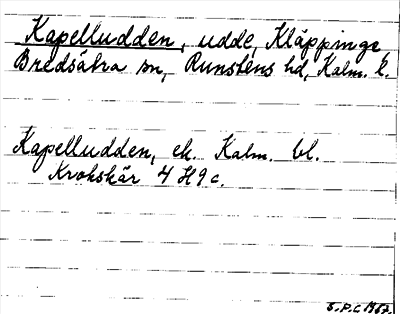 Kapelludden, udde, Kläppinge
Bredsätra sn, Runstens hd, Kalm. l.
Kapelludden, ek. Kalm. bl.
Krokskär 4 H 9 c.
S.P.C 1967.